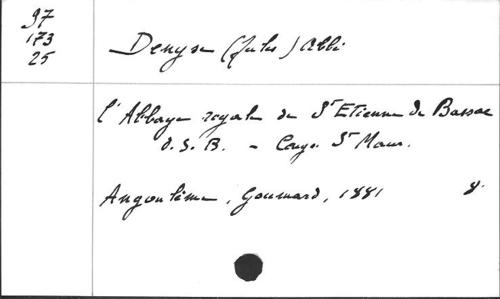 97
173
25
Denyse (Jules) Abbé
l'Abbaye royale de St Etienne de Bassac
O. S. B. - Congr. St Maur.
Angoulême, Goumard, 1881 8°